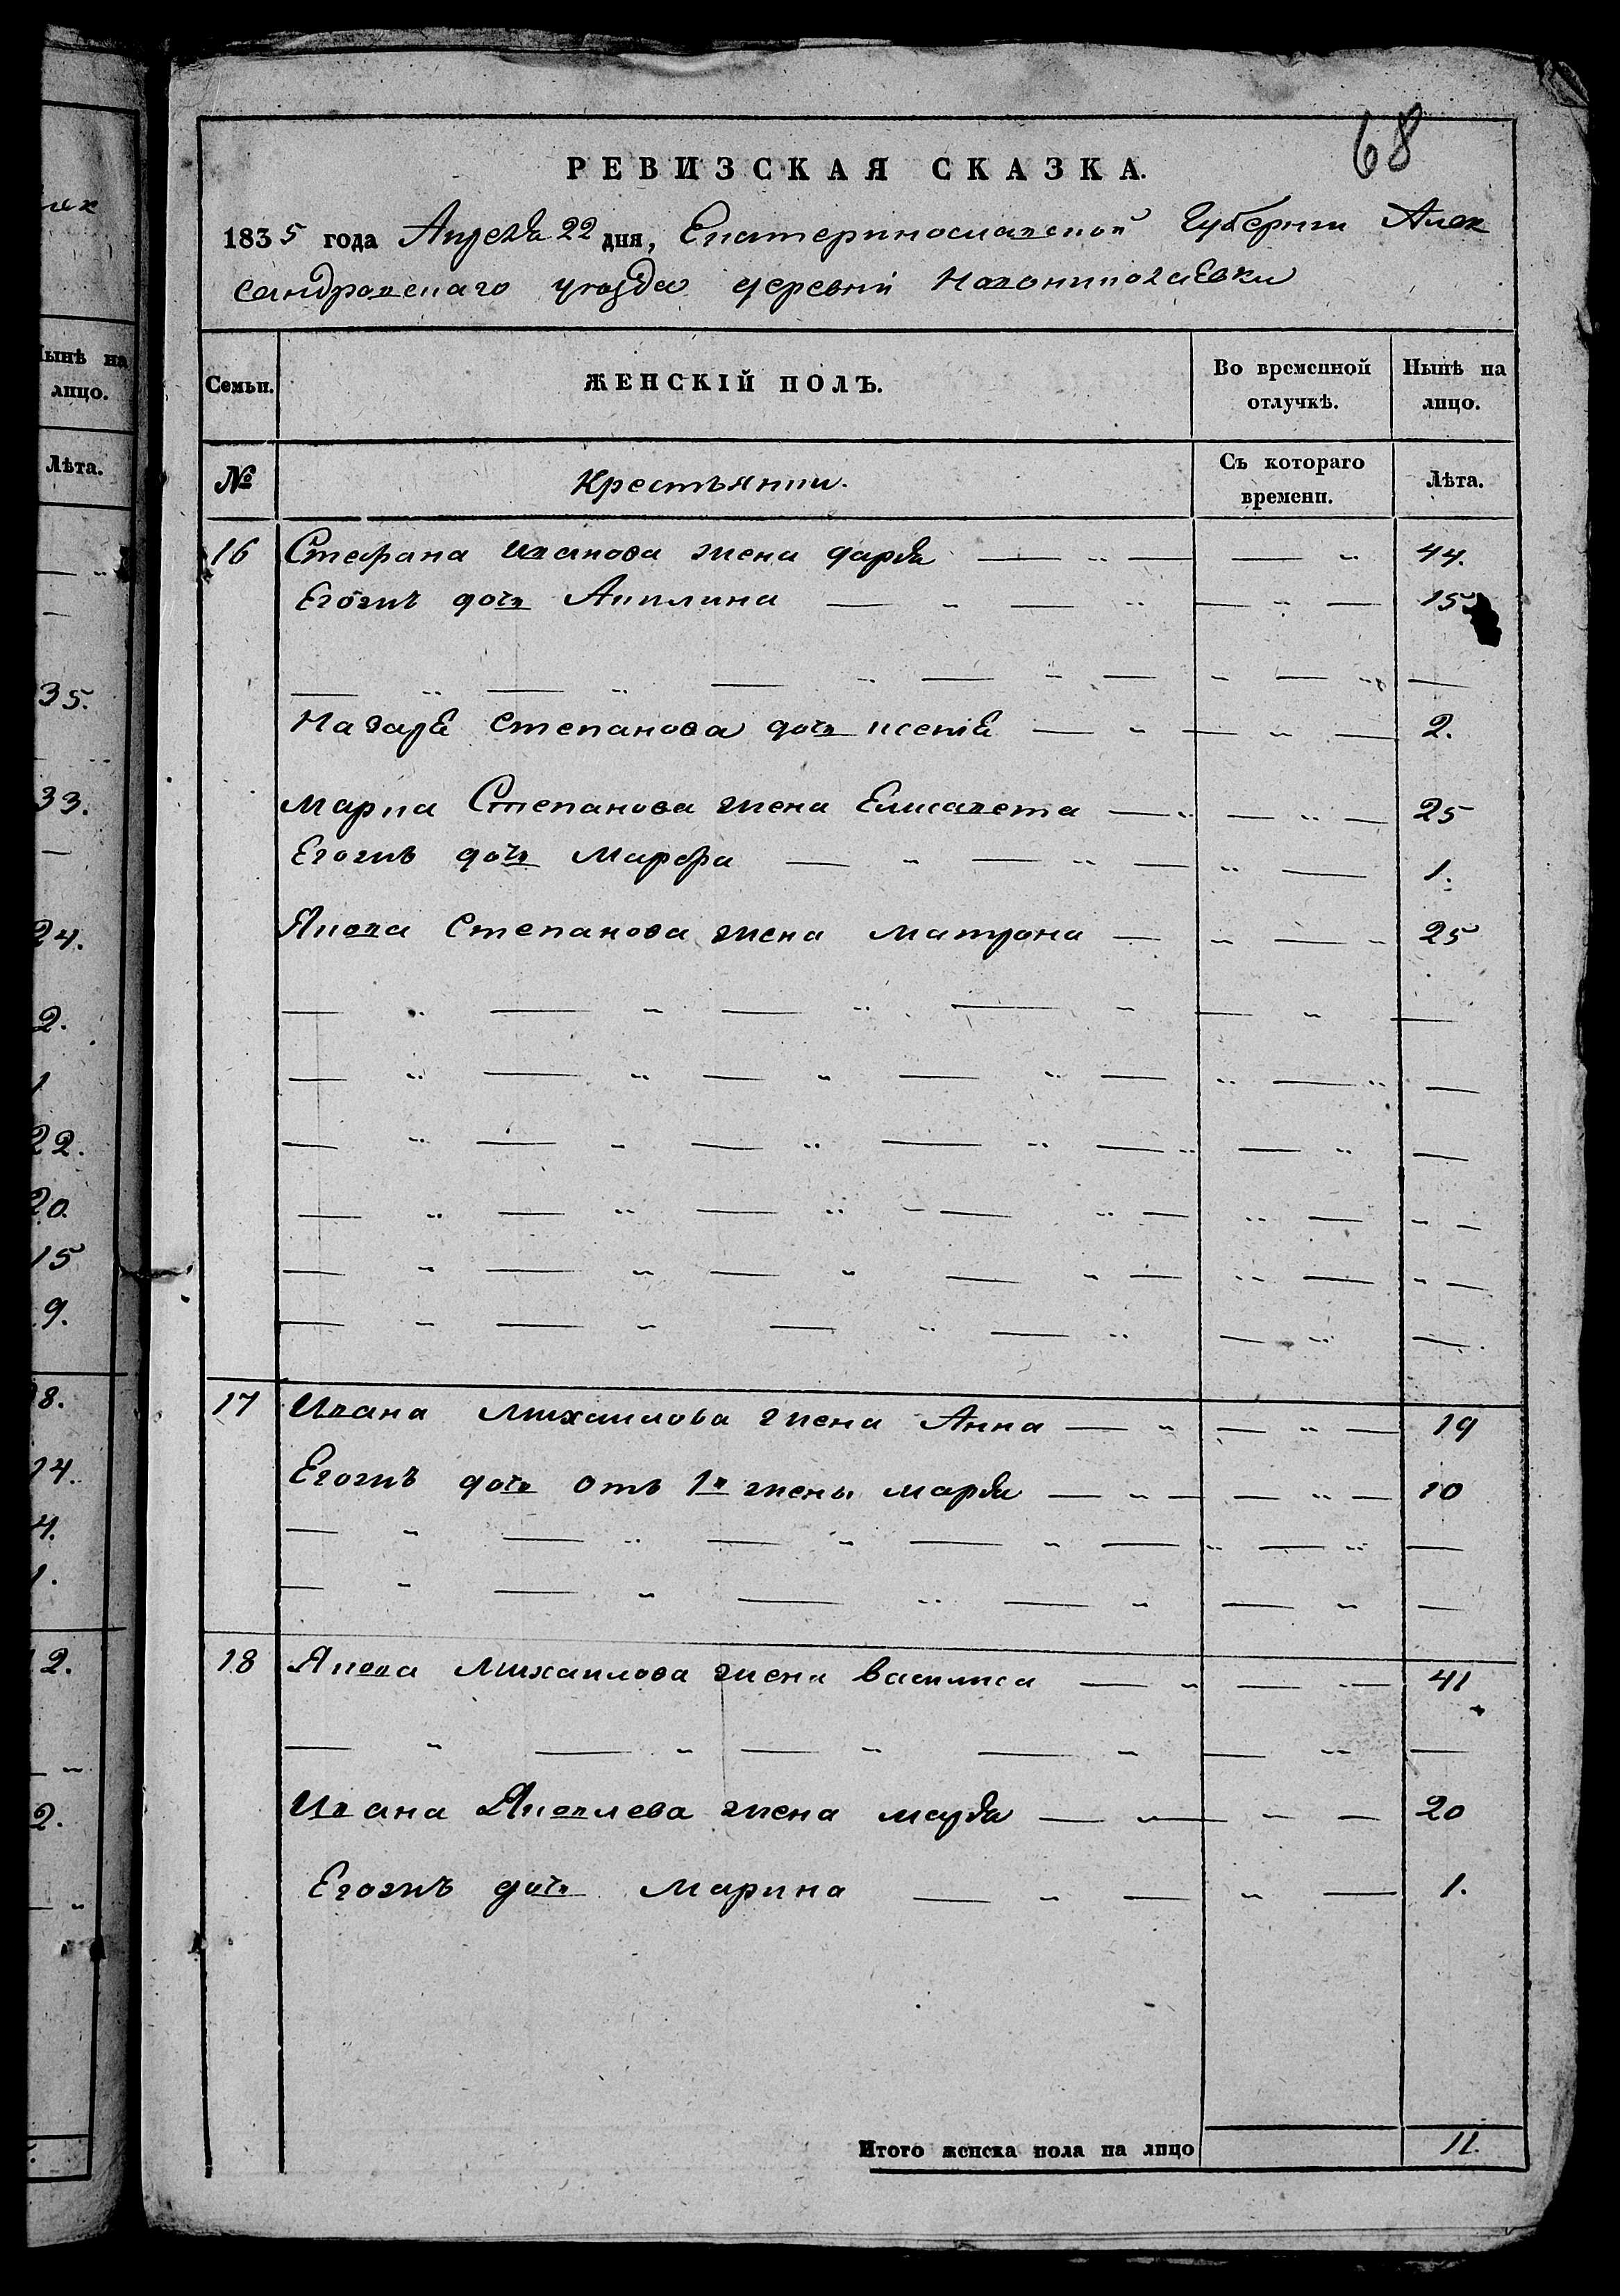 68
РЕВИЗСКАЯ СКАЗКА.
1835 года Апреля 22 дня, Екатеринославской Губернии Алек
сандровскаго уезда деревни
Семьи. ЖЕНСКІЙ ПОЛЪ. Во временной отлучкѣ. Нынѣ на лицо.
№ Крестьянии. Съ котораго времени. Лѣта.
16 Стефана иванова жена дарья 44.
Егожъ дочь Акилина 15
Назара Степанова дочь ксенія 2.
Марка Степанова жена Елисавета 25
Егожъ дочь Марфа 1.
Якова Степанова жена матрона 25
17 Ивана Михаилова жена Анна 19
Егожъ дочь отъ 1й жены марья 10
18 Якова Михаилова жена василиса 41
Ивана Яковлева жена марья 20
Егожъ дочь Марина 1.
Итого женска пола на лицо 11.
ынѣ на
лицо.
Лѣта.
35.
33.
24.
2.
1
22.
20.
15
9.
8.
14.
4.
1.
2.
2.